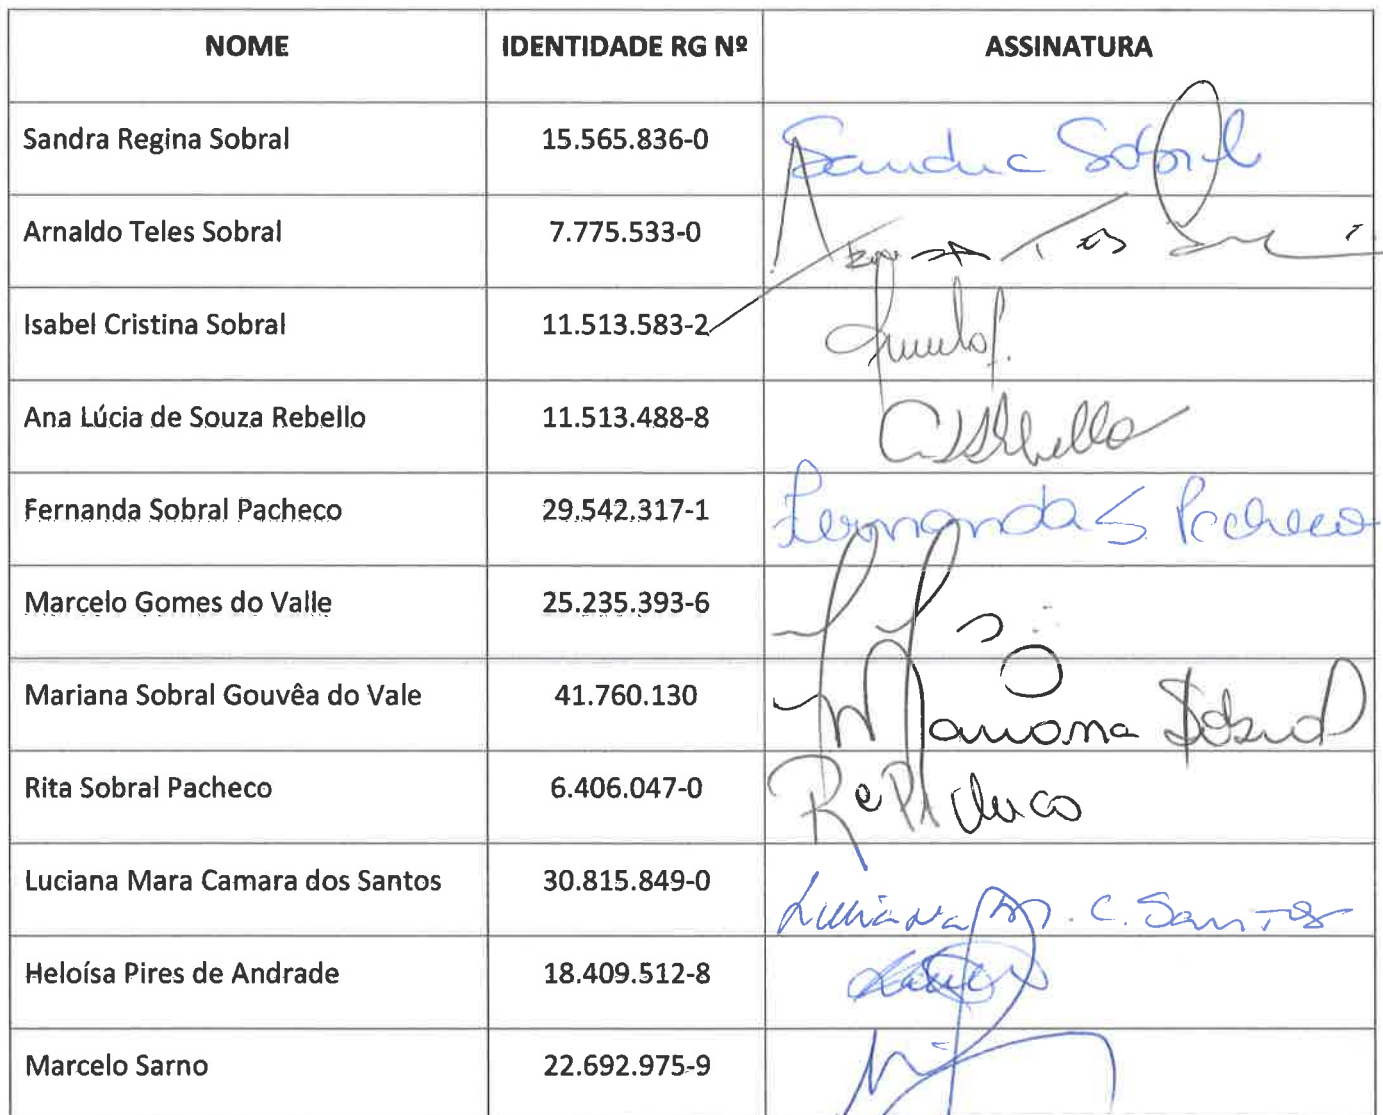 NOME IDENTIDADE RG Nº ASSINATURA
Sandra Regina Sobral 15.565.836-0 Sandra Sobral
Arnaldo Teles Sobral 7.775.533-0
Isabel Cristina Sobral 11.513.583-2
Ana Lúcia de Souza Rebello 11.513.488-8
Fernanda Sobral Pacheco 29.542.317-1 Fernanda S Pacheco
Marcelo Gomes do Valle 25.235.393-6
Mariana Sobral Gouvêa do Vale 41.760.130 Mariana Sobral
Rita Sobral Pacheco 6.406.047-0
Luciana Mara Camara dos Santos 30.815.849-0 Luciana M. C. Santos
Heloísa Pires de Andrade 18.409.512-8
Marcelo Sarno 22.692.975-9